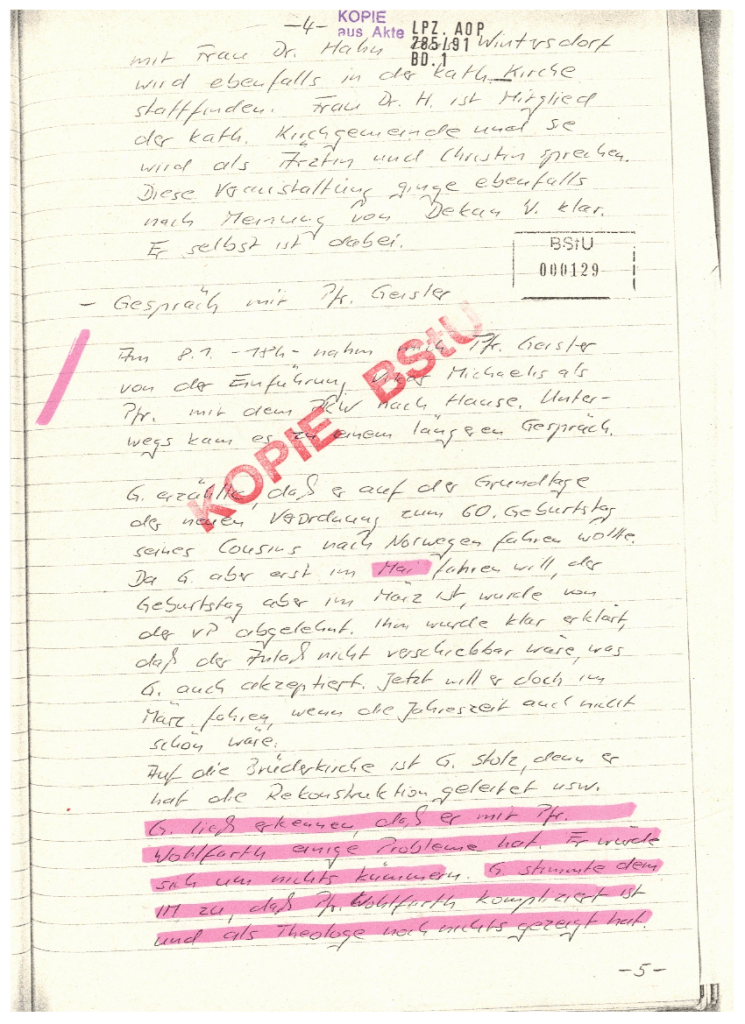 -4-
KOPIE
aus Akte
LPZ. AOP
285/91
BD.1
mit Frau Dr. Hahn Wintersdorf
wird ebenfalls in der kath. Kirche
stattfinden. Frau Dr. H. ist Mitglied
der kath. Kirchgemeinde und sie
wird als Ärztin und Christin sprechen.
Diese Veranstaltung ginge ebenfalls
nach Meinung von Dekan V. klar.
Er selbst ist dabei.
BStU
000129
- Gespräch mit Pfr. Geisler
Am 8.1. -18h- nahm mich Pfr. Geisler
von der Einführung Michaelis als
Pfr. mit dem PKW nach Hause. Unter-
wegs kam es zu einem längeren Gespräch.
KOPIE BStU
G. erzählte, daß er auf der Grundlage
der neuen Verordnung zum 60. Geburtstag
seines Cousins nach Norwegen fahren wollte.
Da G. aber erst im Mai fahren will, der
Geburtstag aber im März ist, wurde von
der VP abgelehnt. Ihm wurde klar erklärt,
daß der Anlaß nicht verschiebbar wäre, was
G. auch akzeptiert. Jetzt will er doch im
März fahren, wenn die Jahreszeit auch nicht
schön wäre.
Auf die Brüderkirche ist G. stolz, denn er
hat die Rekonstruktion geleitet usw.
G. ließ erkennen, daß er mit Pfr.
Wohlfarth einige Probleme hat. Er würde
sich um nichts kümmern. G. stimmte dem
IM zu, daß Pfr. Wohlfarth kompliziert ist
und als Theologe noch nichts gezeigt hat.
-5-